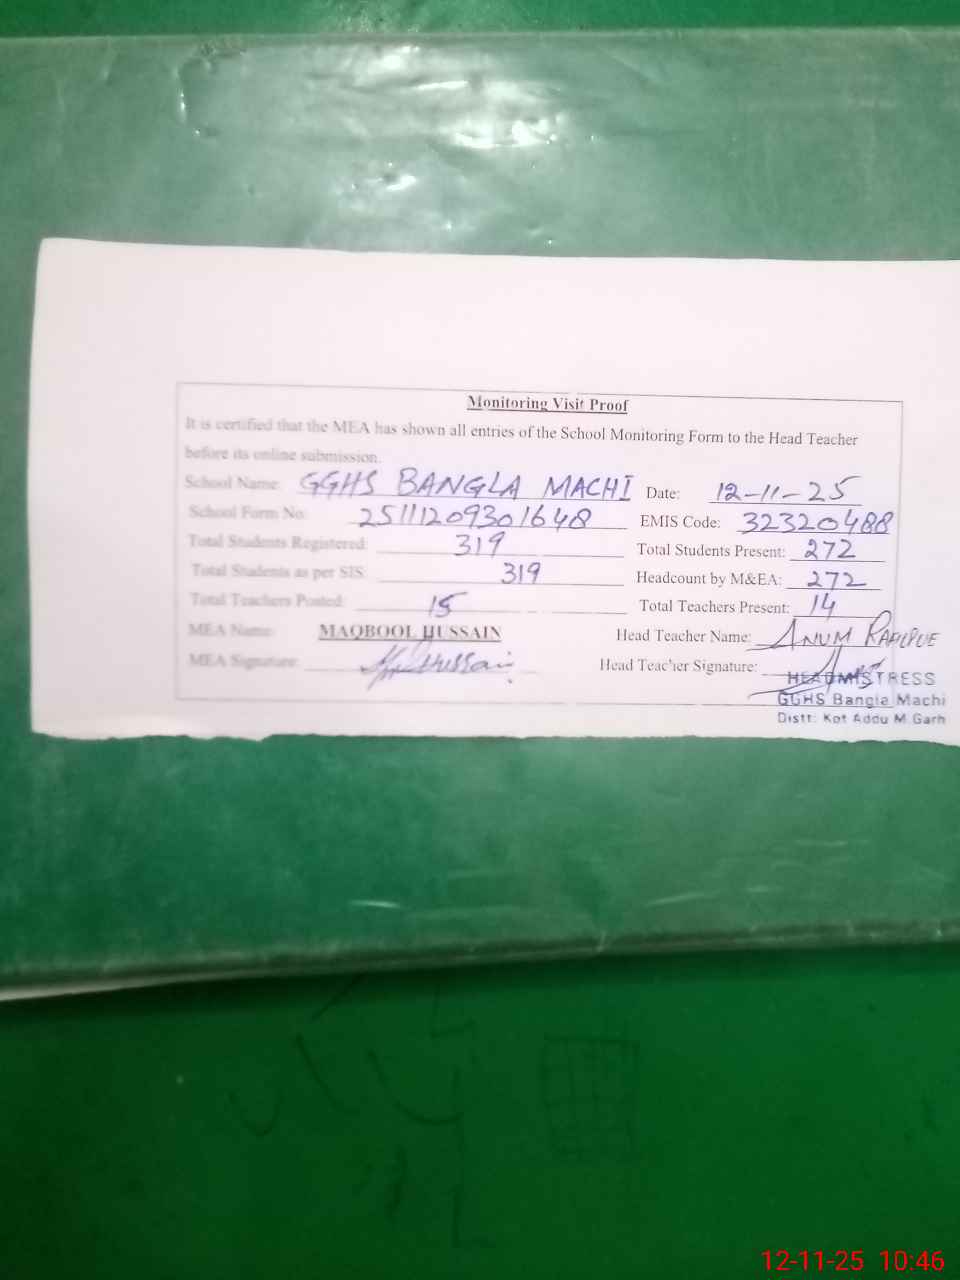 Monitoring Visit Proof
It is certified that the MEA has shown all entries of the School Monitoring Form to the Head Teacher
before its online submission.
School Name: GGHS BANGLA MACHI Date: 12-11-25
School Form No: 25111209301648 EMIS Code: 32320488
Total Students Registered: 319 Total Students Present: 272
Total Students as per SIS: 319 Headcount by M&EA: 272
Total Teachers Posted: 15 Total Teachers Present: 14
MEA Name: MAQBOOL HUSSAIN Head Teacher Name: ANUM
MEA Signature: Hussain Head Teacher Signature:
HEADMISTRESS
GGHS Bangla Machi
Distt: Kot Addu M.Garh
12-11-25 10:46